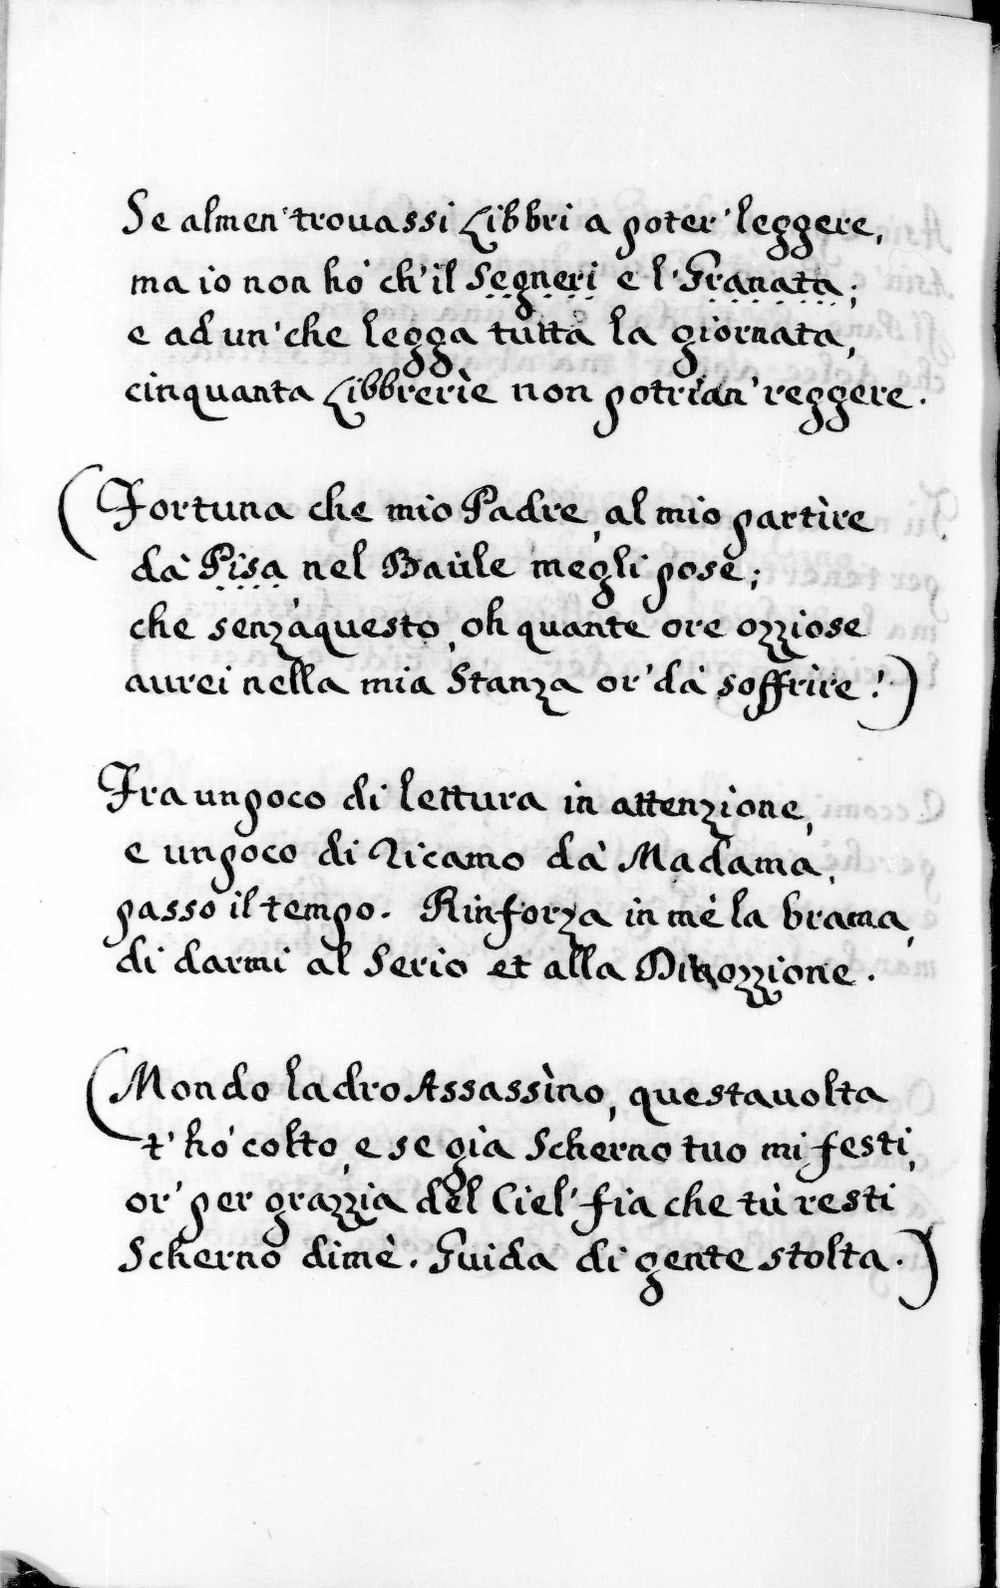 Se almen' trouassi Libbri a poter' leggere,
ma io non hò ch'il Segneri e l'Granata;
e ad un' che legga tuttà la giornata,
cinquanta Libbrerìe non potrìan' reggere.
(Fortuna che mio Padre, al mio partìre
dà Pisa nel Baùle megli pose;
che senz'àquesto, oh quante ore ozziose
aurei nella mia Stanza or' dà soffrìre!)
Fra unpoco di lettura in attenzione,
e unpoco di Ricamo dà Madama,
passo il tempo. Rinforza in mè la brama,
di darmi al Serio et alla Divozzione.
(Mondo ladro Assassìno, questauolta
t'hò colto, e se già Scherno tuo mi festi,
or' per grazzia del Ciel' fia che tù resti
Scherno dimè. Guida di gente stolta.)